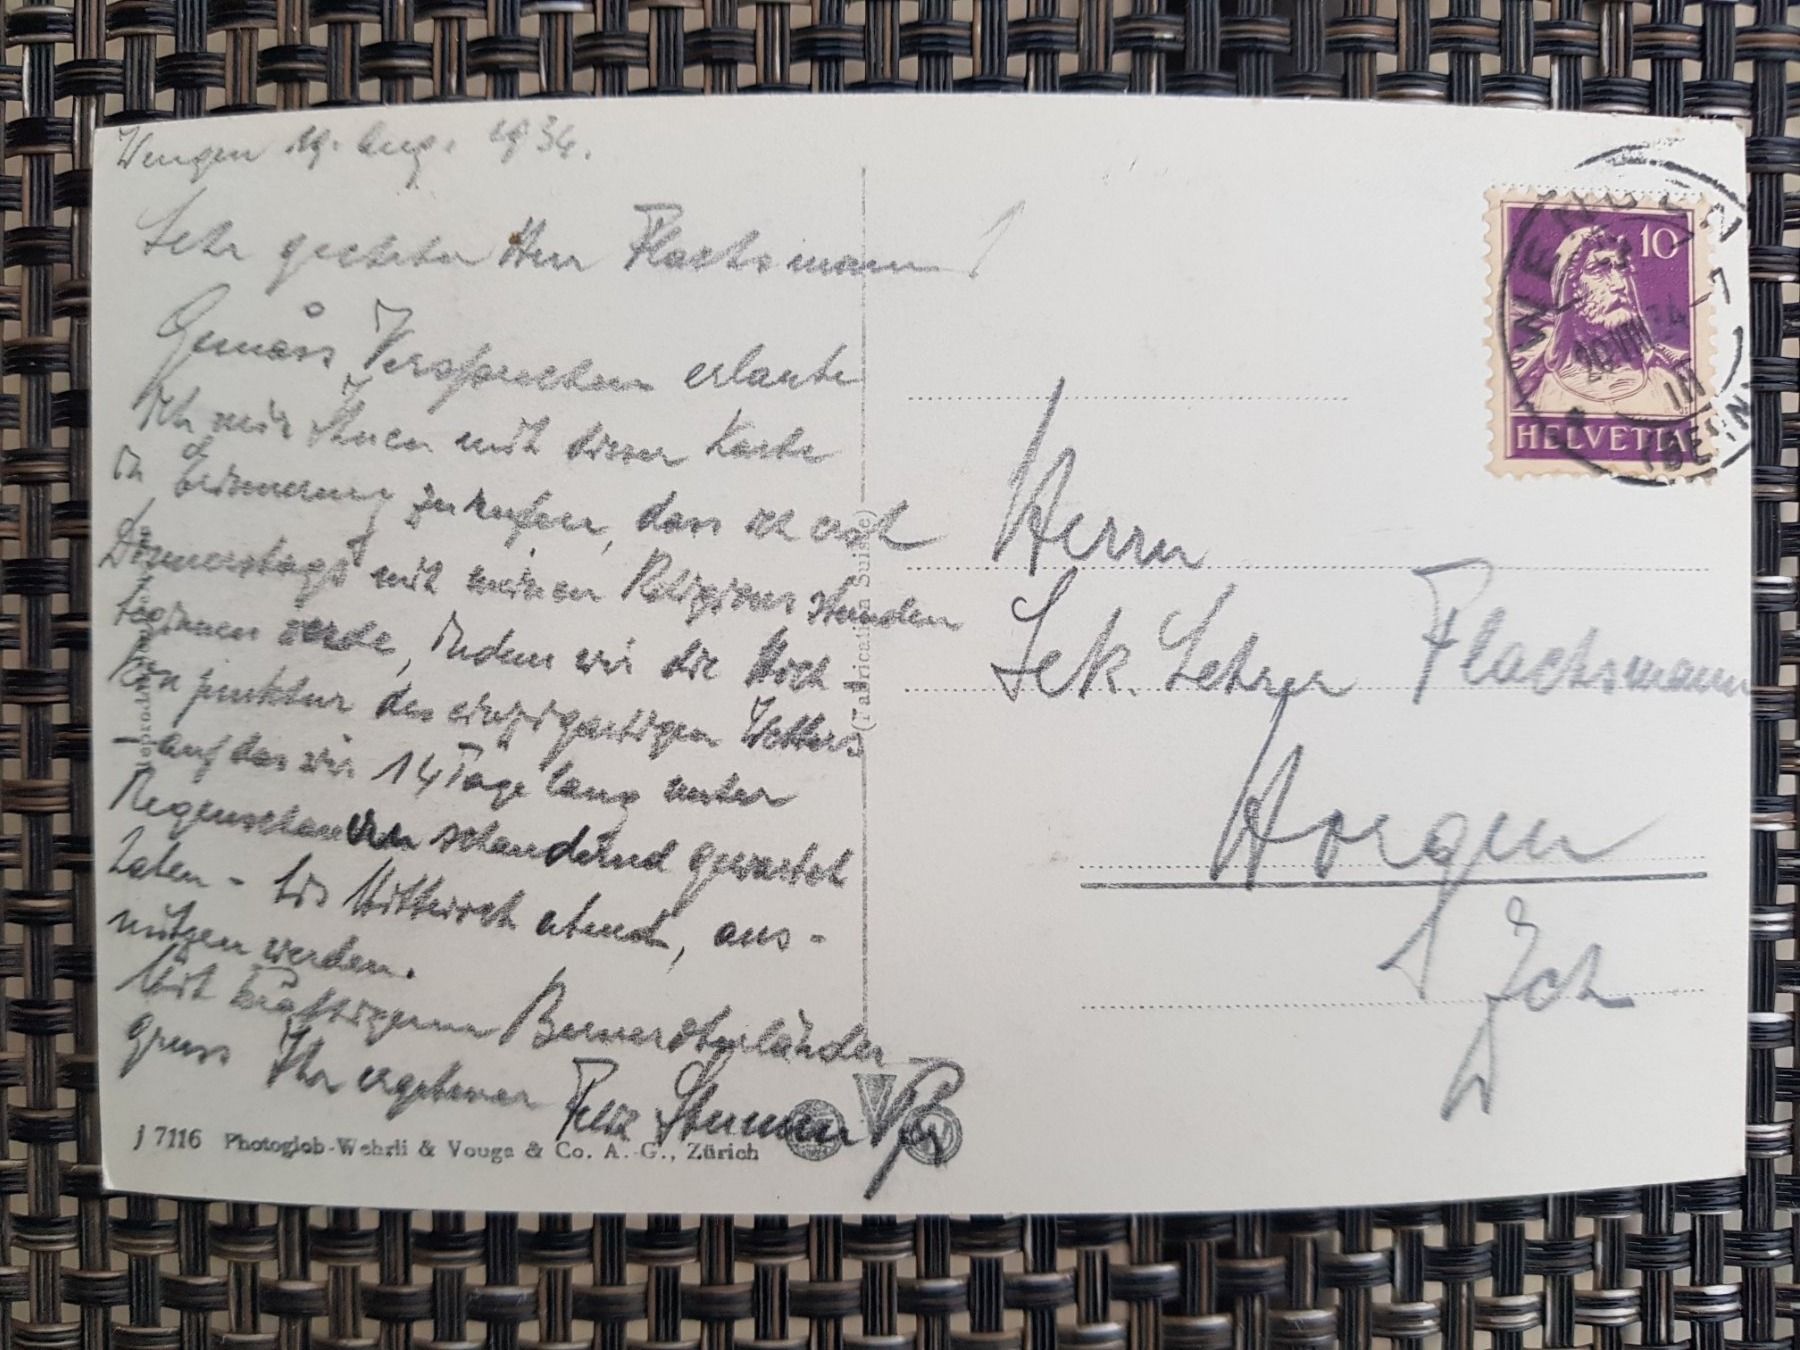 Wengen 19. Aug. 1934.
Sehr geehrter Herr Flachsmann!
Gemäss Versprechen erlaube
ich mir Ihnen mit dieser Karte
in Erinnerung zu rufen, dass ich erst
Donnerstags mit meinen Religionsstunden
beginnen werde, indem wir die Hoch-
konjunktur des einzigartigen Wetters
- auf das wir 14 Tage lang unter
Regenschauern schaudernd gewartet
haben - bis Mittwoch abend, aus-
nützen werden.
Mit kräftigem Berneroberländer-
gruss Ihr ergebener Felix Sturm Pfr
J 7116 Photoglob-Wehrli & Vouga & Co. A.-G., Zürich
(Fabrication Suisse)
10
HELVETIA
WENGEN
20 VIII 34
(BERN)
Herrn
Sek. Lehrer Flachsmann
Horgen
Zch